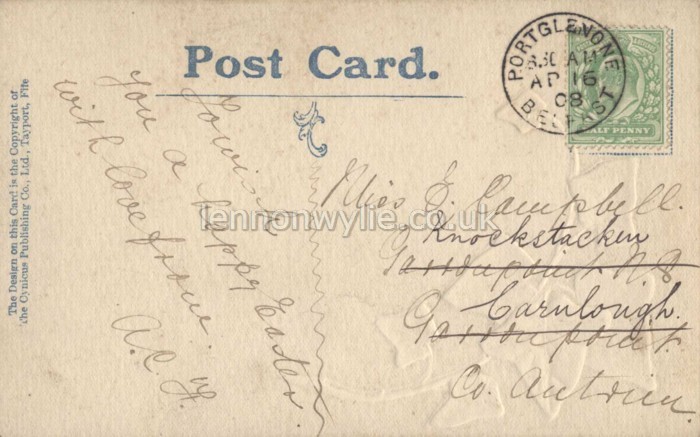 Post Card.
The Design on this Card is the Copyright of
The Cynicus Publishing Co., Ltd., Tayport, Fife
PORTGLENONE
8.30 AM
AP 16
08
BELFAST
HALF PENNY
To wish
you a happy Easter
with love from
A.C.
Miss E. Campbell.
Knockstacken
Garronpoint
Carnlough.
Garronpoint.
Co. Antrim.
lennonwylie.co.uk